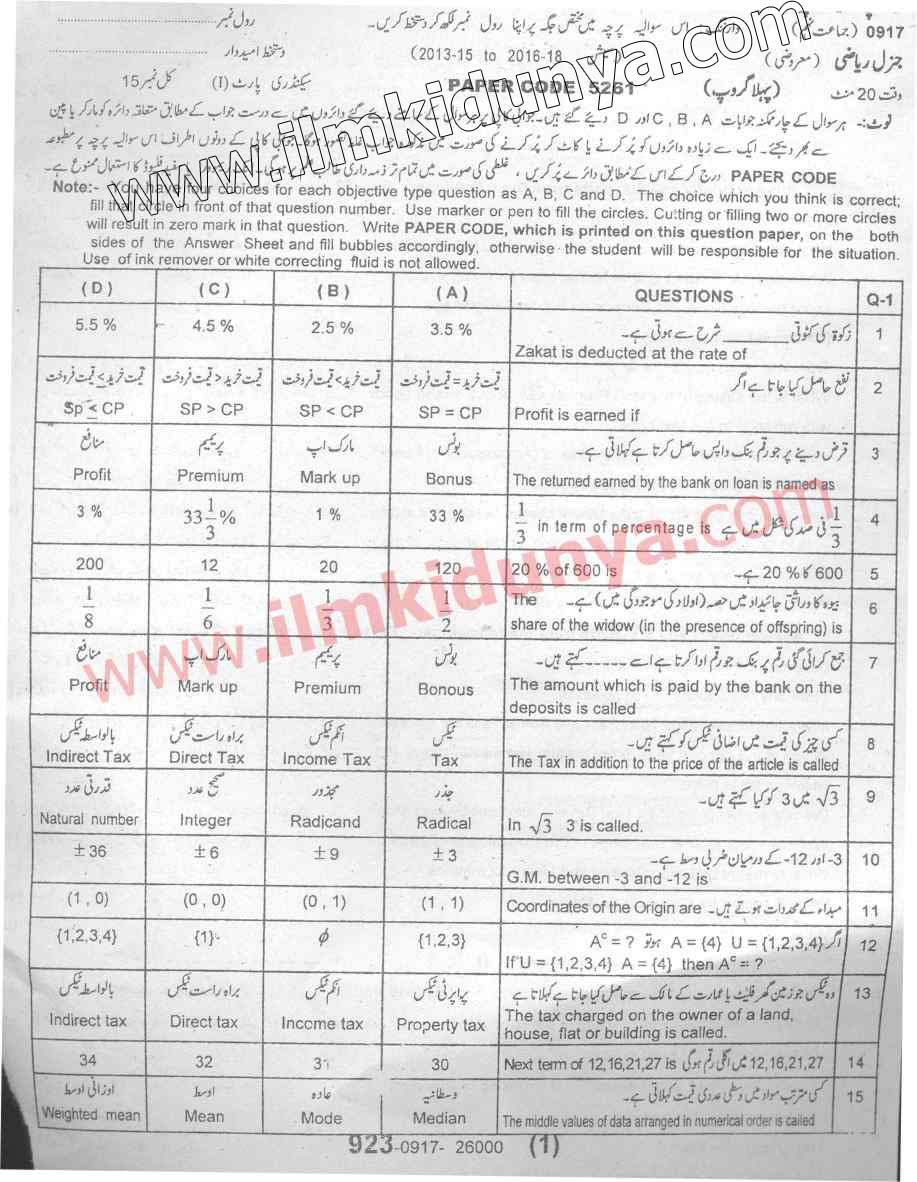 0917 (جماعت نہم) وارننگ:۔ اس سوالیہ پرچہ میں مختص جگہ پر اپنا رول نمبر لکھ کر دستخط کریں۔ رول نمبر
جنرل ریاضی (معروضی) (2013-15 to 2016-18 دستخط امیدوار
وقت 20 منٹ (پہلا گروپ) PAPER CODE 5261 سیکنڈری پارٹ (I) کل نمبر 15
نوٹ:۔ ہر سوال کے چار ممکنہ جوابات C , B , A اور D دیئے گئے ہیں۔ جوابی کاپی پر ہر سوال کے سامنے دیئے گئے دائروں میں سے درست جواب کے مطابق متعلقہ دائرہ کو مارکر یا پین
سے بھر دیجئے۔ ایک سے زیادہ دائروں کو پُر کرنے یا کاٹ کر پُر کرنے کی صورت میں مذکورہ جواب غلط تصور ہو گا۔ جوابی کاپی کے دونوں اطراف اس سوالیہ پرچہ پر مطبوعہ
PAPER CODE درج کر کے اس کے مطابق دائرے پُر کریں، غلطی کی صورت میں تمام تر ذمہ داری طالب علم پر ہو گی۔ فلیوڈ کا استعمال ممنوع ہے۔
Note:- You have four choices for each objective type question as A, B, C and D. The choice which you think is correct;
fill that circle in front of that question number. Use marker or pen to fill the circles. Cutting or filling two or more circles
will result in zero mark in that question. Write PAPER CODE, which is printed on this question paper, on the both
sides of the Answer Sheet and fill bubbles accordingly, otherwise the student will be responsible for the situation.
Use of ink remover or white correcting fluid is not allowed.
(D) (C) (B) (A) QUESTIONS Q-1
5.5 % 4.5 % 2.5 % 3.5 % زکوٰۃ کی کٹوتی ______ شرح سے ہوتی ہے۔ 1
Zakat is deducted at the rate of
قیمت خرید ≥ قیمت فروخت قیمت خرید > قیمت فروخت قیمت خرید < قیمت فروخت قیمت خرید = قیمت فروخت نفع حاصل کیا جاتا ہے اگر 2
Sp ≤ CP SP > CP SP < CP SP = CP Profit is earned if
منافع پریمیم مارک اپ بونس قرض دینے پر جو رقم بنک واپس حاصل کرتا ہے کہلاتی ہے۔ 3
Profit Premium Mark up Bonus The returned earned by the bank on loan is named as
3 % 33 1/3 % 1 % 33 % 1/3 in term of percentage is 1/3 فی صد کی شکل میں ہے 4
200 12 20 120 20 % of 600 is 600 کا 20 % ہے۔ 5
1/8 1/6 1/3 1/2 The بیوہ کا وراثتی جائیداد میں حصہ (اولاد کی موجودگی میں) ہے۔ 6
share of the widow (in the presence of offspring) is
منافع مارک اپ پریمیم بونس جمع کرائی گئی رقم پر بنک جو رقم ادا کرتا ہے اسے ----- کہتے ہیں۔ 7
Profit Mark up Premium Bonous The amount which is paid by the bank on the
deposits is called
بالواسطہ ٹیکس براہ راست ٹیکس انکم ٹیکس ٹیکس کسی چیز کی قیمت میں اضافی ٹیکس کو کہتے ہیں۔ 8
Indirect Tax Direct Tax Income Tax Tax The Tax in addition to the price of the article is called
قدرتی عدد صحیح عدد مجذور جذر √3 میں 3 کو کیا کہتے ہیں۔ 9
Natural number Integer Radicand Radical In √3 3 is called.
± 36 ± 6 ± 9 ± 3 -3 اور -12 کے درمیان ضربی وسط ہے۔ 10
G.M. between -3 and -12 is
(1 , 0) (0 , 0) (0 , 1) (1 , 1) Coordinates of the Origin are مبداء کے محددات ہوتے ہیں۔ 11
{1,2,3,4} {1} ϕ {1,2,3} اگر U = {1,2,3,4} A = {4} ہو تو Aᶜ = ? 12
If U = {1,2,3,4} A = {4} then Aᶜ = ?
بالواسطہ ٹیکس براہ راست ٹیکس انکم ٹیکس پراپرٹی ٹیکس وہ ٹیکس جو زمین گھر فلیٹ یا عمارت کے مالک سے حاصل کیا جاتا ہے کہلاتا ہے 13
Indirect tax Direct tax Income tax Property tax The tax charged on the owner of a land,
house, flat or building is called.
34 32 31 30 Next term of 12,16,21,27 is 12,16,21,27 میں اگلی رقم ہوگی 14
اوزانی اوسط اوسط عادہ وسطانیہ کسی مرتب مواد میں وسطی عددی قیمت کہلاتی ہے۔ 15
Weighted mean Mean Mode Median The middle values of data arranged in numerical order is called
923-0917- 26000 (1)
www.ilmkidunya.com
www.ilmkidunya.com